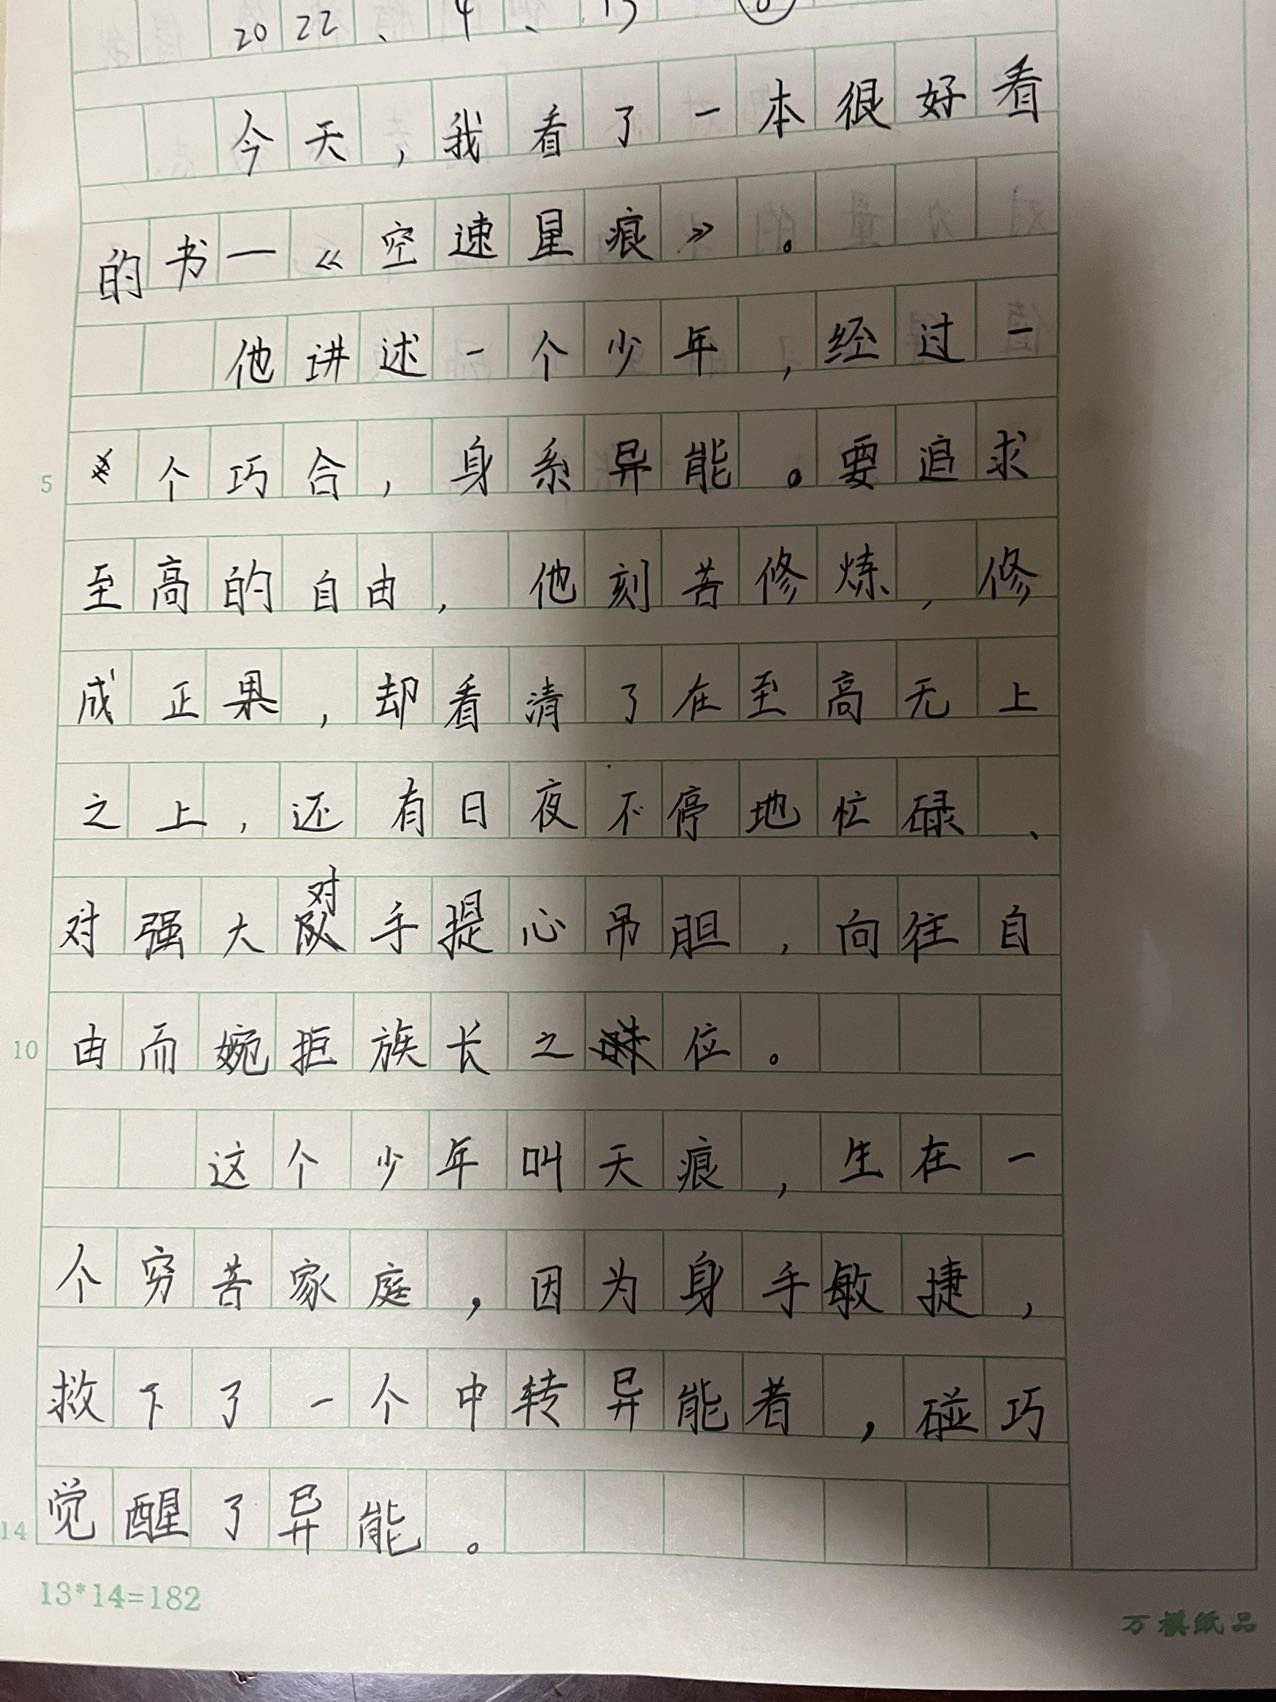 2022、4、13 ⑥
今天，我看了一本很好看
的书—《空速星痕》。
他讲述一个少年，经过一
个巧合，身系异能。要追求
5
至高的自由，他刻苦修炼，修
成正果，却看清了在至高无上
之上，还有日夜不停地忙碌、
对强大对手提心吊胆，向往自
由而婉拒族长之位。
10
这个少年叫天痕，生在一
个穷苦家庭，因为身手敏捷，
救下了一个中转异能者，碰巧
觉醒了异能。
14
13*14=182
万祺纸品